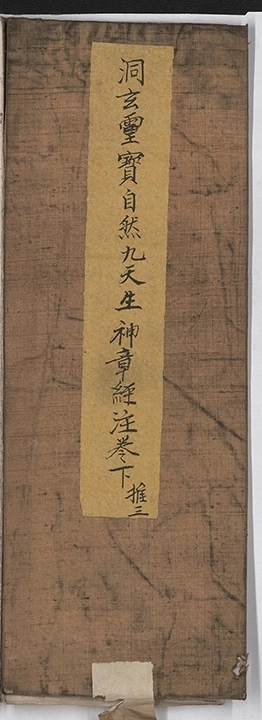 洞玄靈寶自然九天生神章經注卷下
推三